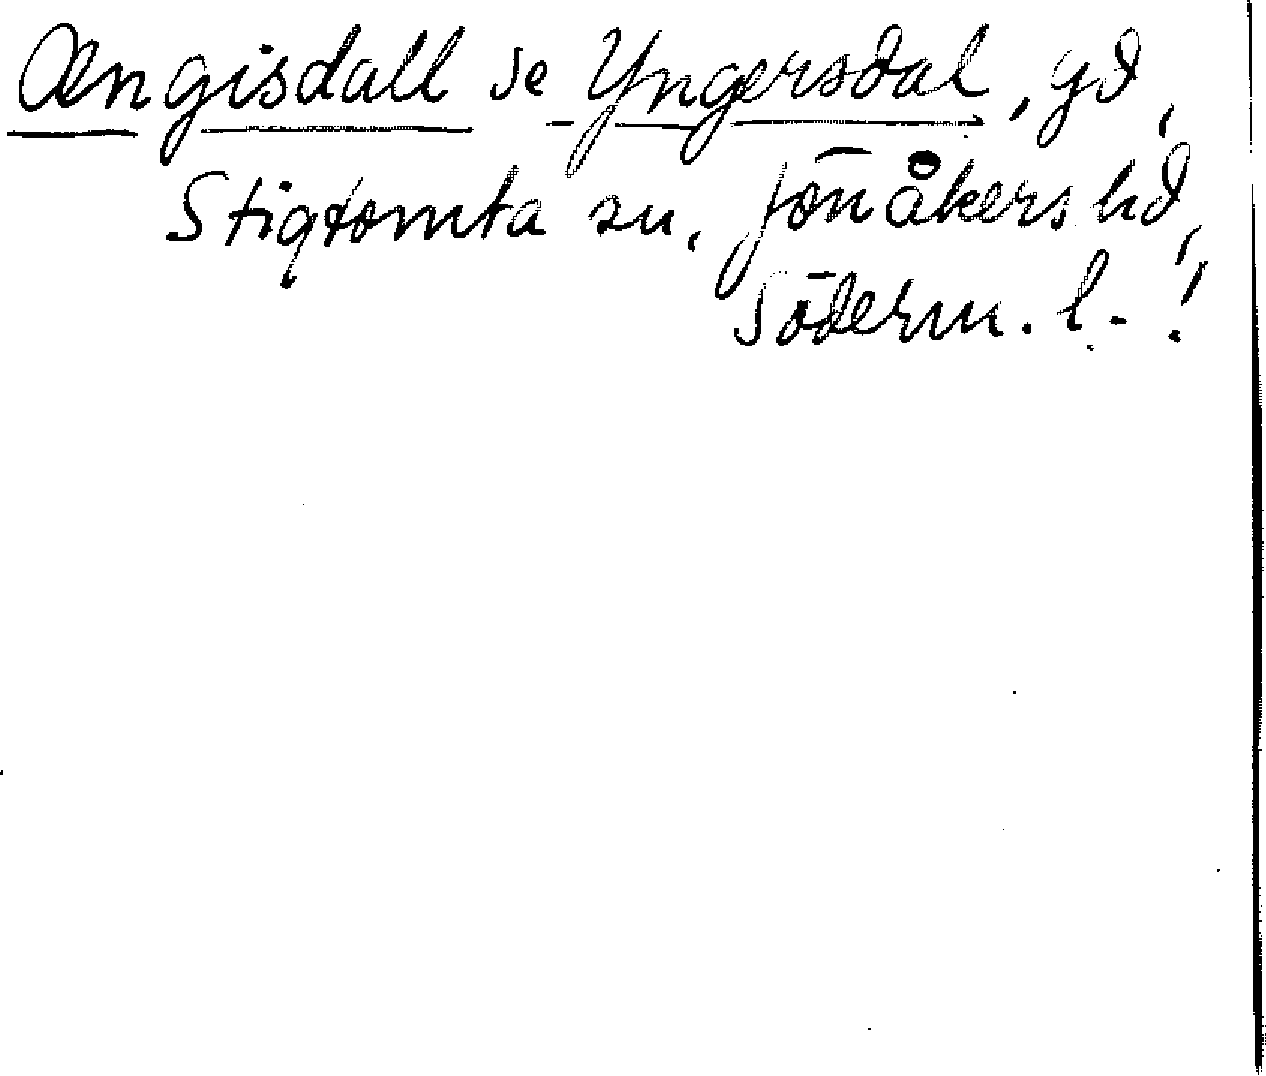 Ængisdall se Yngersdal, gd,
Stigtomta sn, Jönåkers hd,
Söderm. l.!